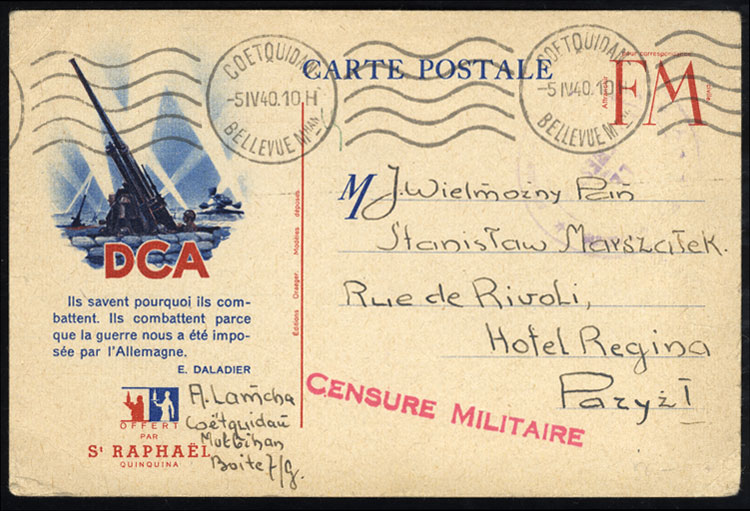 COETQUIDAN
-5 IV 40.10 H
BELLEVUE MBIHAN
CARTE POSTALE
COETQUIDAN
-5 IV 40.10 H
BELLEVUE M
FM
DCA
Ils savent pourquoi ils com-
battent. Ils combattent parce
que la guerre nous a été impo-
sée par l'Allemagne.
E. DALADIER
OFFERT
PAR
St RAPHAËL
QUINQUINA
Éditions Draeger. Modèles déposés
M J. Wielmożny Pan
Stanisław Marszałek.
Rue de Rivoli,
Hotel Regina
Paryż I
CENSURE MILITAIRE
A. Lamcha
Coëtquidan
Morbihan
Boite 7/g.